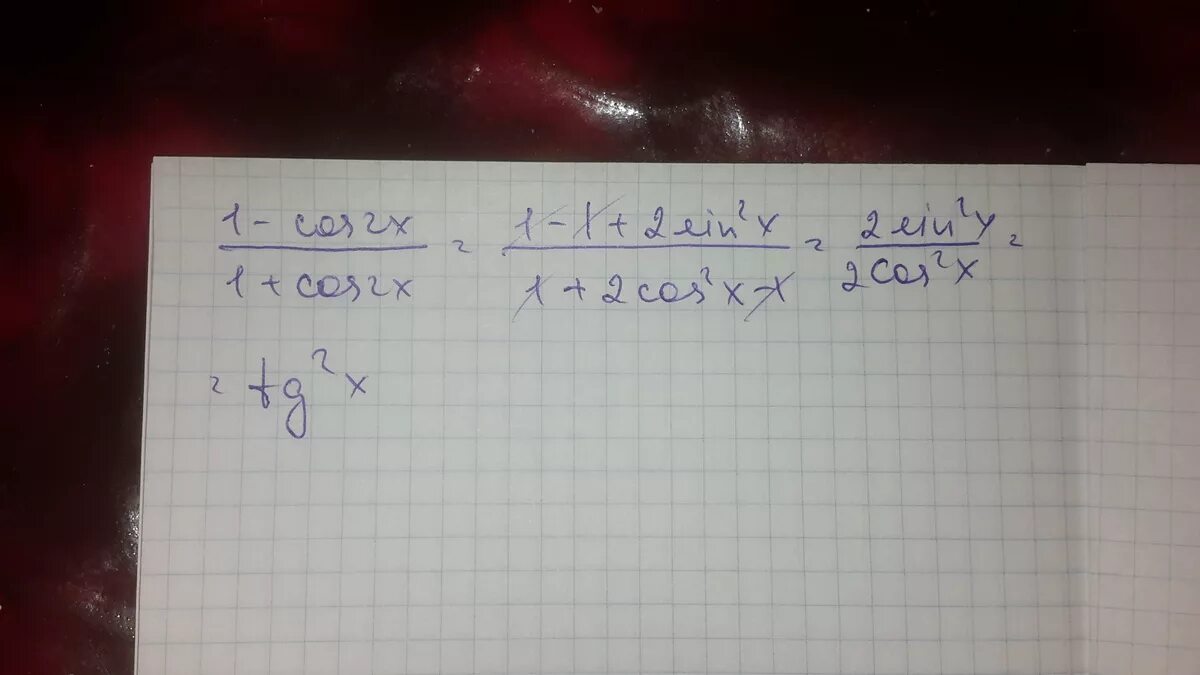 (1 - cos2x)/(1 + cos2x) = (1 - 1 + 2sin²x)/(1 + 2cos²x - 1) = (2sin²x)/(2cos²x) =
= tg²x